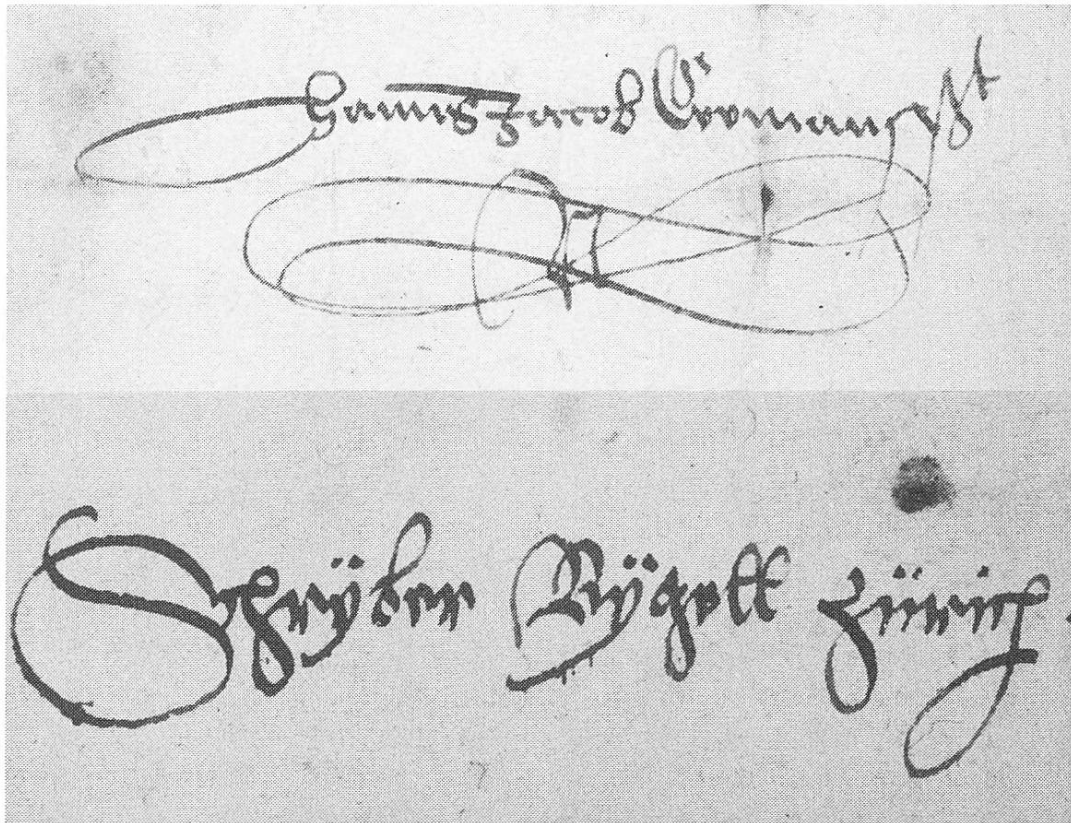 Hanns Jacob Croman
Schryber Rÿgell Zürich.